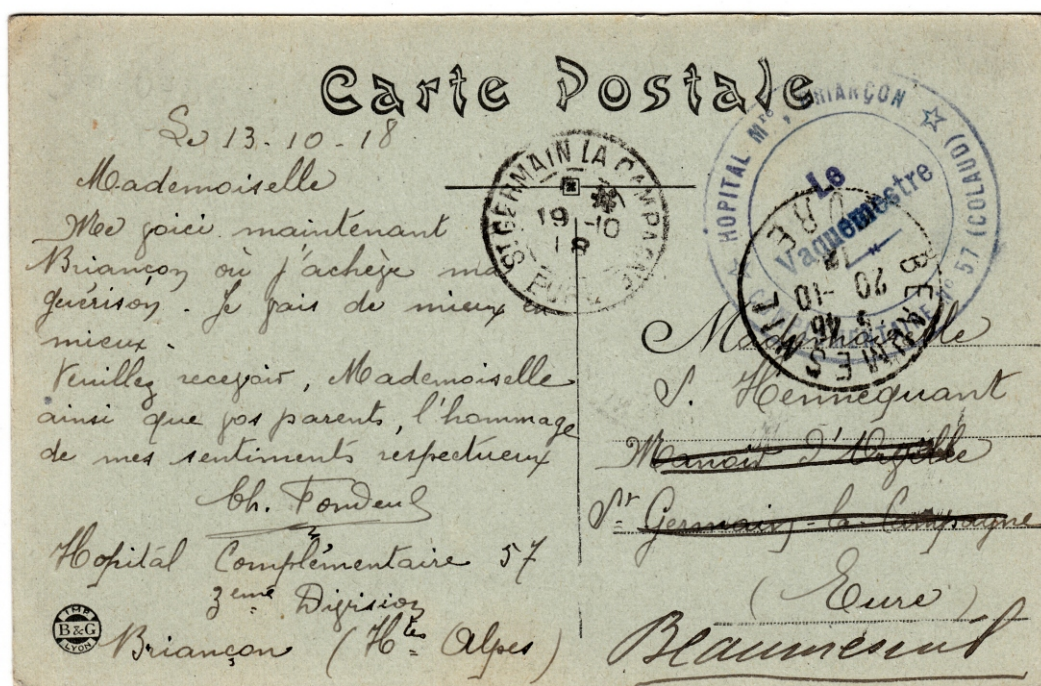 Carte Postale
Le 13-10-18
Mademoiselle
Me voici maintenant
Briançon où j'achève ma
guérison. Je vais de mieux en
mieux.
Veuillez recevoir, Mademoiselle
ainsi que vos parents, l'hommage
de mes sentiments respectueux
Ch.
Hopital Complémentaire 57
3eme Division
Briançon (Htes Alpes)
IMP
B&G
LYON
ST GERMAIN LA CAMPAGNE
19-10
18
EURE
HOPITAL Mre, BRIANÇON ☆
COMPLEMENTAIRE No 57 (COLAUD)
Le
Vaguemestre
BEAUMESNIL
EURE
20-10
18
Mademoiselle
S. Hennequant
Manoir d'Orgille
St Germain-la-Campagne
(Eure)
Beaumesnil